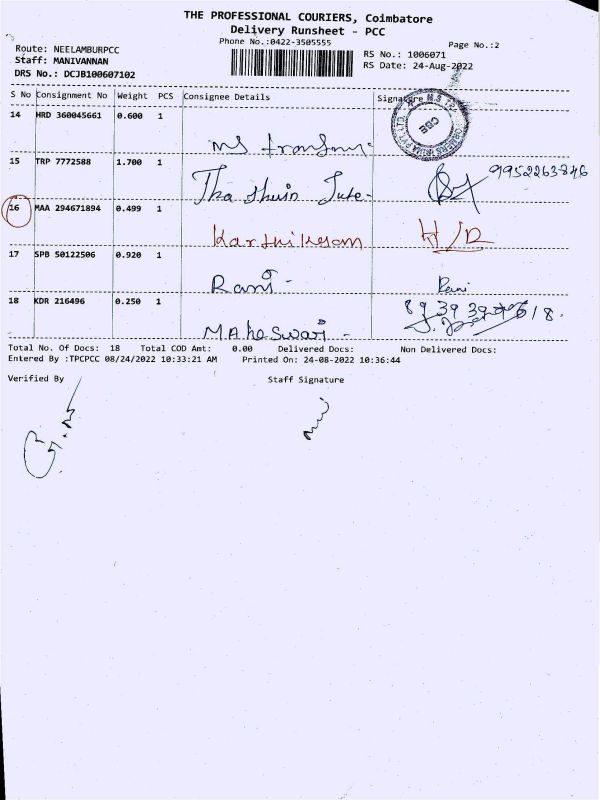 THE PROFESSIONAL COURIERS, Coimbatore
Delivery Runsheet - PCC
Phone No.:0422-3505555
Page No.:2
Route: NEELAMBURPCC
Staff: MANIVANNAN
DRS No.: DCJB100607102
RS No.: 1006071
RS Date: 24-Aug-2022
S No Consignment No Weight PCS Consignee Details Signature
14 HRD 360045661 0.600 1
MS
15 TRP 7772588 1.700 1
9952263846
16 MAA 294671894 0.499 1
Karthikesan H/D
17 SPB 50122506 0.920 1
Rani - Rani
18 KDR 216496 0.250 1
Maheswari -
Total No. Of Docs: 18 Total COD Amt: 0.00 Delivered Docs: Non Delivered Docs:
Entered By :TPCPCC 08/24/2022 10:33:21 AM Printed On: 24-08-2022 10:36:44
Verified By Staff Signature